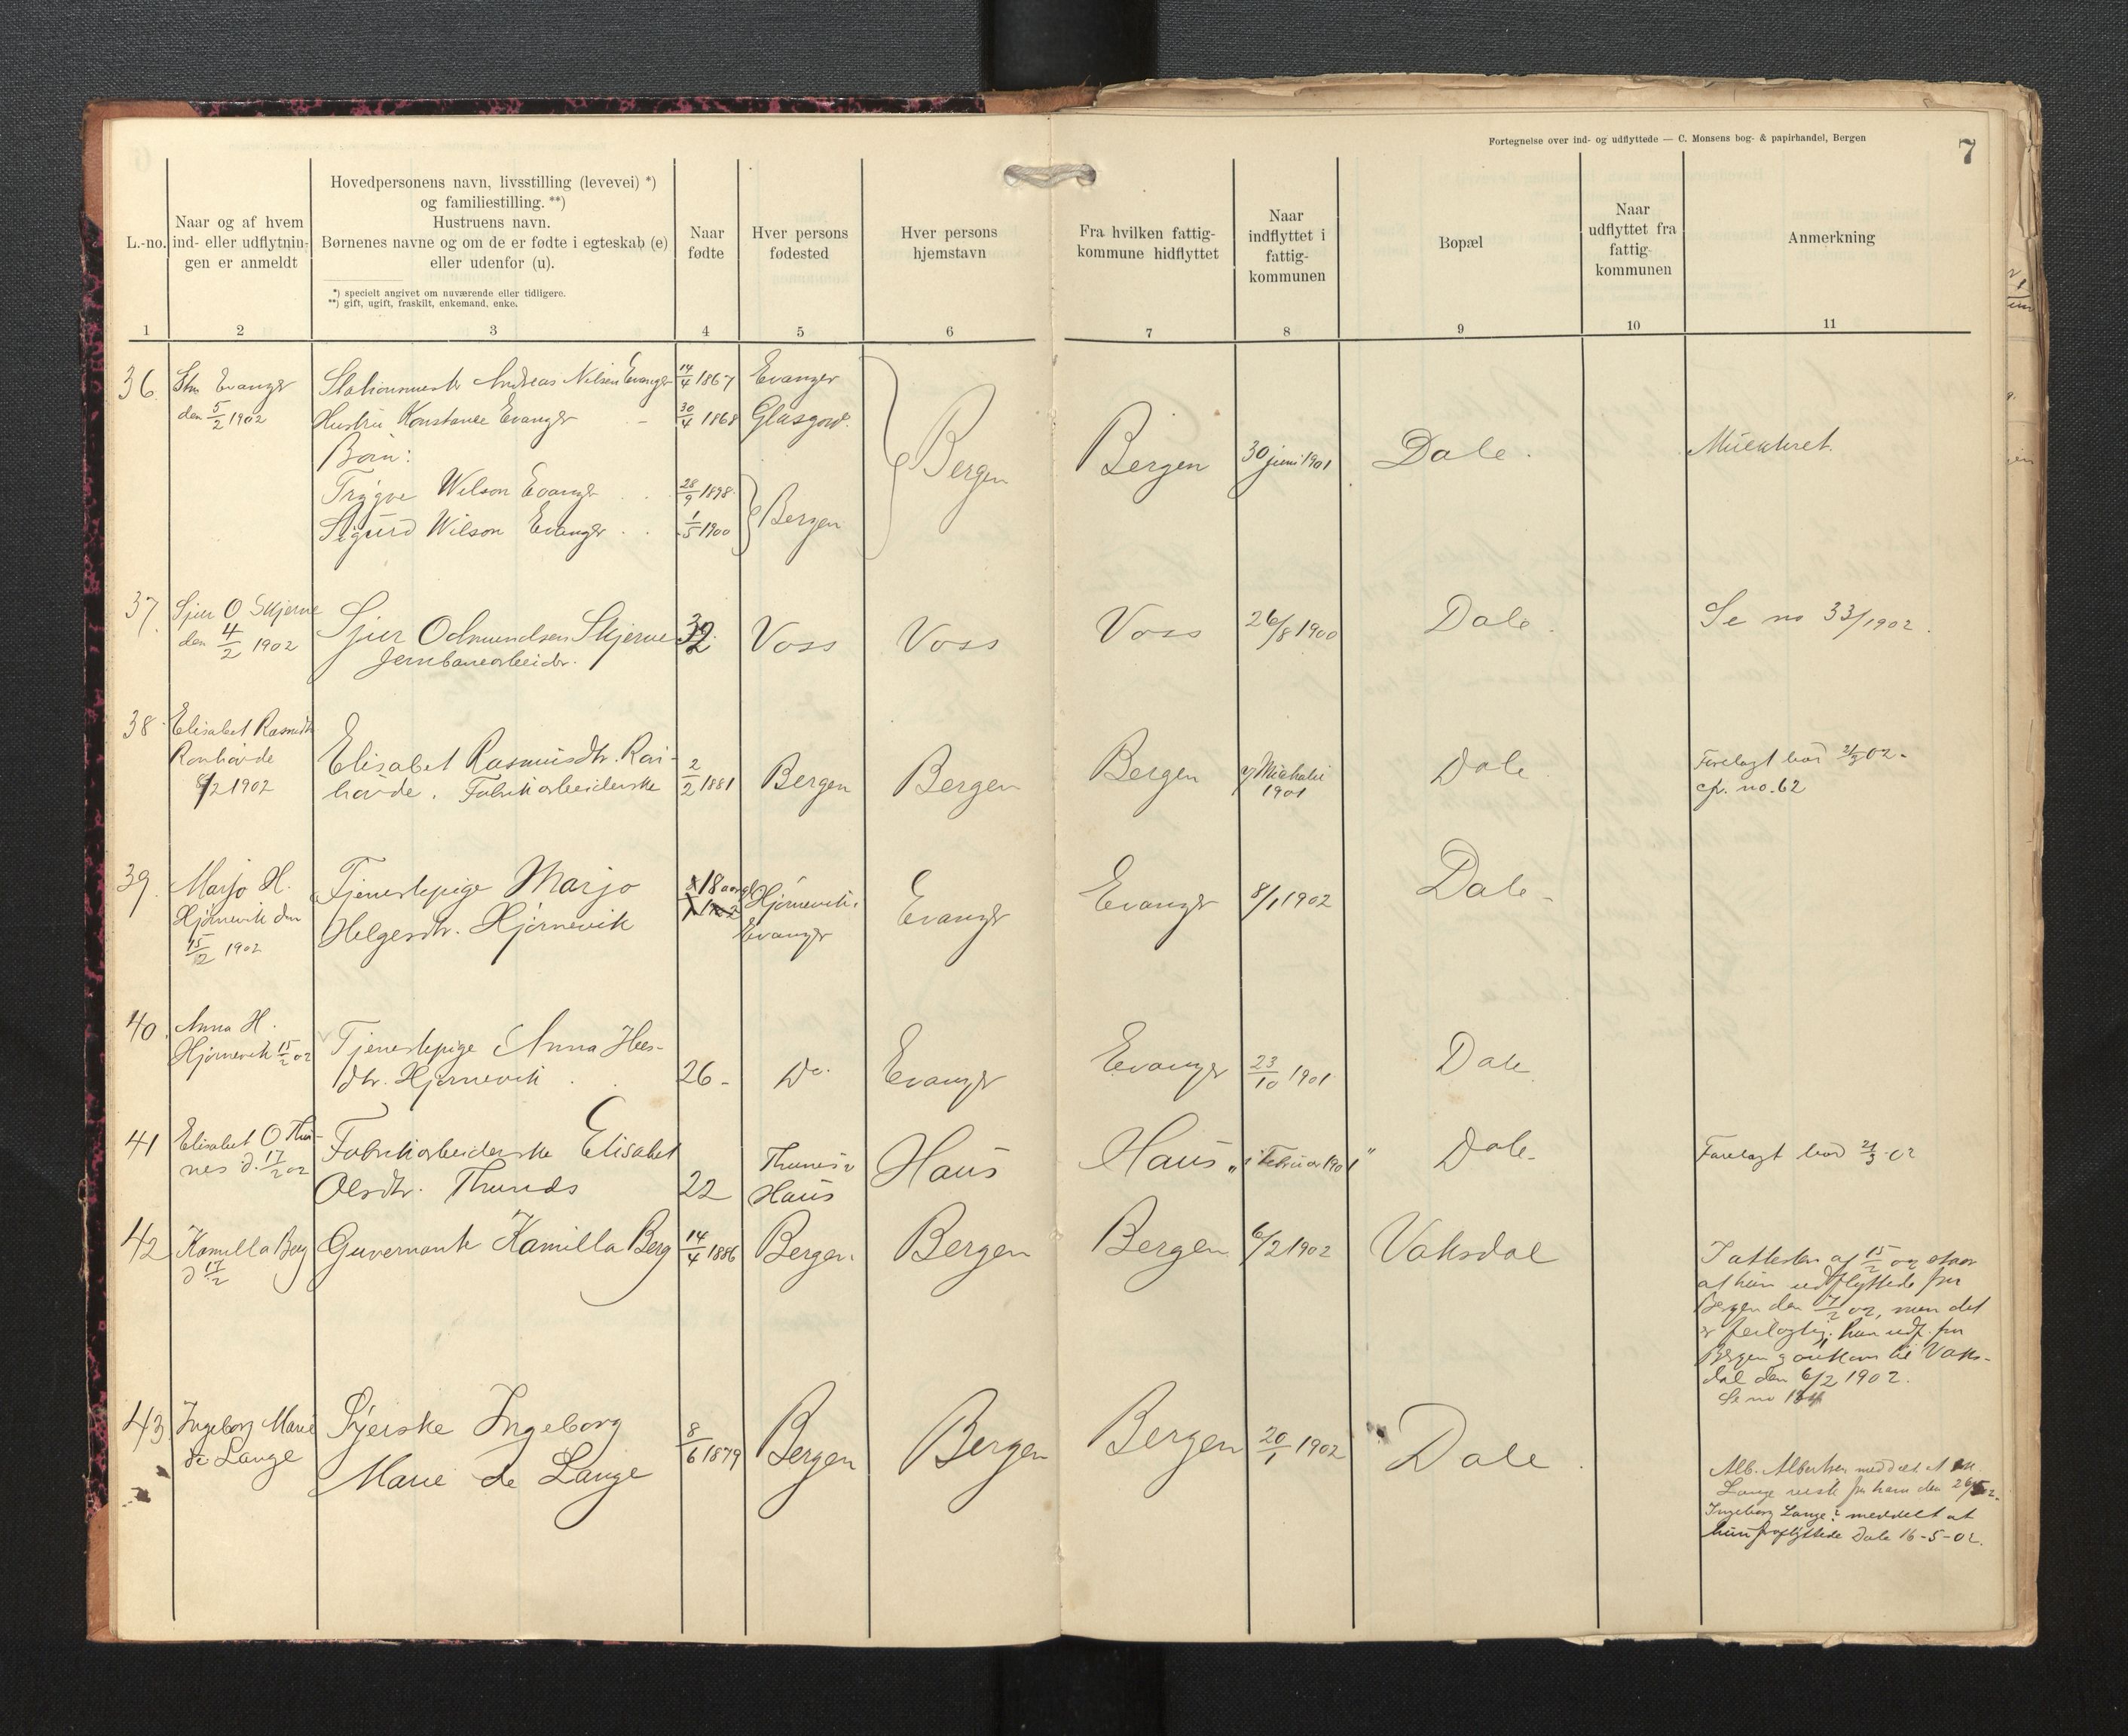 Fortegnelse over ind- og udflyttede — C. Monsens bog- & papirhandel, Bergen
7
L.-no.
Naar og af hvem
ind- eller udflytnin-
gen er anmeldt
Hovedpersonens navn, livsstilling (levevei) *)
og familiestilling. **)
Hustruens navn.
Børnenes navne og om de er fødte i egteskab (e)
eller udenfor (u).
*) specielt angivet om nuværende eller tidligere.
**) gift, ugift, fraskilt, enkemand, enke.
Naar
fødte
Hver persons
fødested
Hver persons
hjemstavn
Fra hvilken fattig-
kommune hidflyttet
Naar
indflyttet i
fattig-
kommunen
Bopæl
Naar
udflyttet fra
fattig-
kommunen
Anmerkning
1 2 3 4 5 6 7 8 9 10 11
36. Stm Evanger
den 5/2 1902
Stationsmester Andreas Nilsen Evanger 14/4 1867 Evanger
Hustru Konstance Evanger - 30/4 1868 Glasgow.
Børn:
Trygve Wilson Evanger . . 28/9 1898.
Sigurd Wilson Evanger . . 1/5 1900
Bergen
Bergen
Bergen 30 juni 1901 Dale.
37. Sjur O Skjerve
den 4/2 1902
Sjur Odmundsen Skjerve
Jernbanearbeider.
32 Voss Voss Voss 26/8 1900 Dale. Se no 33/1902.
38. Elisabet Rasmusdtr
8/2 1902
Elisabet Rasmusdtr. Rau-
høvde. Fabrikarbeiderske
2/2 1881 Bergen Bergen Bergen
1901
Dale
Forelagt 2/3 02.
cfr. no. 62
39. Marjo H.
Hjørnevik den
15/2 1902
Tjenestepige Marjo
Helgesdtr. Hjørnevik
18 aar
Hjørnevik.
Evanger
Evanger Evanger 8/1 1902 Dale.
40. Anna H.
Hjørnevik 15/2 02
Tjenestepige Anna
dtr. Hjørnevik .
26- Do. Evanger Evanger 23/10 1901. Dale.
41 Elisabet O Thu-
nes d. 17/2 02
Fabrikarbeiderske Elisabet
Olsdtr. Thunes
22
Thunes
Haus
Haus Haus „i Februar 1901" Dale.
Forelagt 21/3 02
42 Kamilla Berg
d 17/2
Guvernante Kamilla Berg 14/4 1886 Bergen. Bergen Bergen 6/2 1902 Vaksdal
I attesten af 15/2 02 staar
at hun udflyttede fra
Bergen den 7/2 02, men det
er feilagtig. hun udf. fra
Bergen og ankom til Vaks-
dal den 6/2 1902.
Se no
43. Ingeborg Marie
de Lange
Syerske Ingeborg
Marie de Lange
8/6 1879 Bergen Bergen Bergen 20/1 1902 Dale.
Alb. Albertsen meddelt at
Lange reiste fra ham den
Ingeborg Lange: meddelt at
hun fraflyttede Dale 16-5-02.